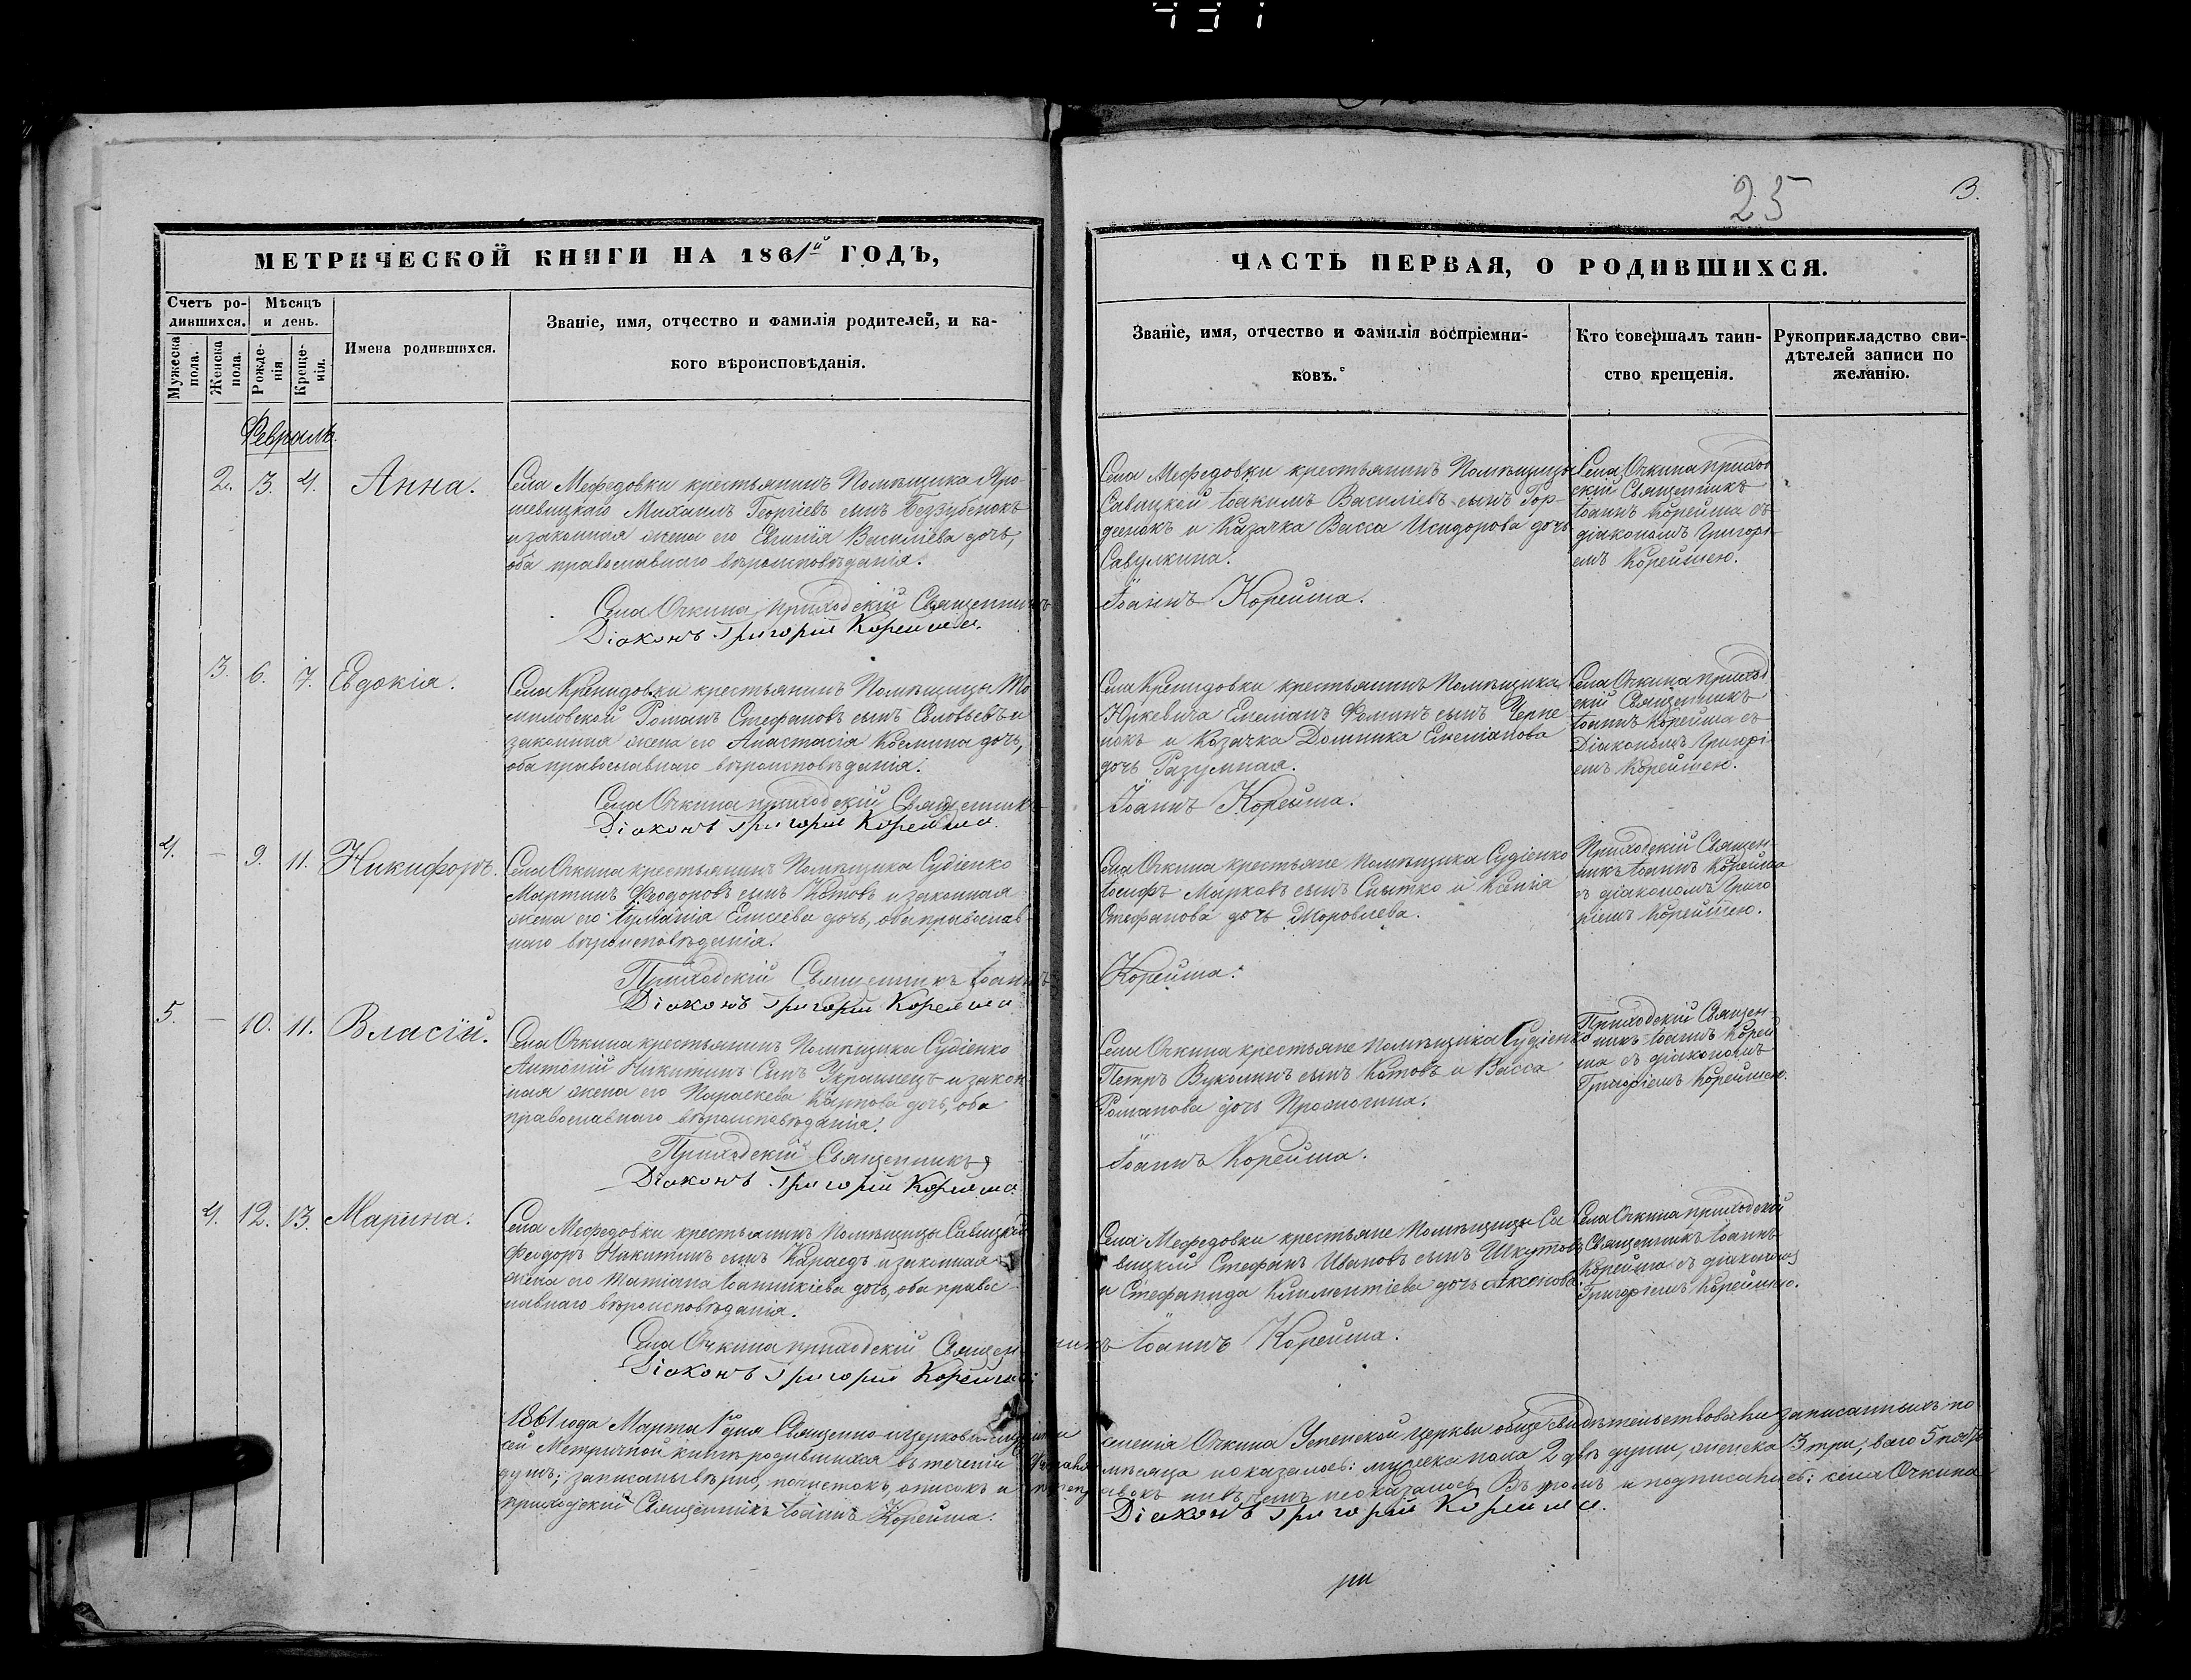 25
3.
МЕТРИЧЕСКОЙ КНИГИ НА 1861й ГОДЪ,
ЧАСТЬ ПЕРВАЯ, О РОДИВШИХСЯ.
Счетъ ро-
дившихся.
Мѣсяцъ
и день.
Мужеска
пола.
Женска
пола.
Рожде-
нія.
Креще-
нія.
Имена родившихся.
Званіе, имя, отчество и фамилія родителей, и ка-
кого вѣроисповѣданія.
Званіе, имя, отчество и фамилія воспріемни-
ковъ.
Кто совершалъ таин-
ство крещенія.
Рукоприкладство сви-
дѣтелей записи по
желанію.
Февраль.
2. 3. 4. Анна.
Села Мефедовки крестьянинъ Помѣщика Яро-
шевицкаго Михаилъ Георгіевъ сынъ Беззубенокъ
и законная жена его Евгенія Василіева дочь,
оба православнаго вѣроисповѣданія.
Села Мефедовки крестьянинъ Помѣщицы
Савицкой Іоакимъ Василіевъ сынъ Гор-
деенокъ и Казачка Васса Исидорова дочь
Савулкина.
Села Очкина приход
скій Священникъ
Іоаннъ Корейша съ
діакономъ Григорі-
емъ Корейшею.
Села Очкина приходскій Священникъ Іоаннъ Корейша.
Діаконъ Григорій Корейша.
3. 6. 7. Евдокія.
Села Крепидовки крестьянинъ Помѣщицы То
миловской Романъ Стефановъ сынъ Соловьевъ и
законная жена его Анастасія Космина дочь,
оба православнаго вѣроисповѣданія.
Села Крепидовки крестьянинъ Помѣщика
Юркевича Емеліанъ Фоминъ сынъ Черпе
нокъ и Козачка Домника
дочь Разумная.
Села Очкина приход
скій Священникъ
Іоаннъ Корейша съ
Діакономъ Григорі-
емъ Корейшею.
Села Очкина приходскій Священникъ Іоаннъ Корейша.
Діаконъ Григорій Корейша.
4. — 9. 11. Никифоръ.
Села Очкина крестьянинъ Помѣщика Судіенко
Мартинъ Феодоровъ сынъ Котовъ и законная
жена его Іуліанія Елисеева дочь, оба православ-
наго вѣроисповѣданія.
Села Очкина крестьяне помѣщика Судіенко
Іосифъ Марковъ сынъ Сытко и Ксенія
Стефанова дочь Журовлева.
Приходскій Священ-
никъ Іоаннъ Корейша
съ діакономъ Григо
ріемъ Корейшею.
Приходскій Священникъ Іоаннъ Корейша.
Діаконъ Григорій Корейша
5. — 10. 11. Власій.
Села Очкина крестьянинъ Помѣщика Судіенко
Антоній Никитинъ Сынъ Украинецъ и закон
ная жена его Параскева Карпова дочь, оба
православнаго вѣроисповѣданія.
Села Очкина крестьяне помѣщика Судіенко
Петръ Вуколинъ сынъ Котовъ и Васса
Романова дочь
Приходскій Священ-
никъ Іоаннъ Корей
ша съ діакономъ
Григоріемъ Корейшею.
Приходскій Священникъ Іоаннъ Корейша.
Діаконъ Григорій Корейша.
4. 12. 13. Марина.
Села Мефедовки крестьянинъ Помѣщицы Савицкой
Феодоръ Никитинъ сынъ Караедъ и законная
жена его Татіана Іоанникіева дочь, оба право
славнаго вѣроисповѣданія.
Села Мефедовки крестьяне Помѣщицы Са
вицкой Стефанъ Ивановъ сынъ Шкутовъ
и Стефанида Климентіева дочь Аксенова.
Села Очкина приходскій
Священникъ Іоаннъ
Корейша съ діакономъ
Григоріемъ Корейшею.
Села Очкина приходскій Священникъ Іоаннъ Корейша.
Діаконъ Григорій Корейша
1861 года Марта 1го дня Священно-церковно-служители селенія Очкина Успенской церкви обще свидѣтельствовали записанныхъ по
сей Метричной книгѣ родившихся въ теченіи Февраля мѣсяца показалось: мужеска пола 2 двѣ души, женска 3 три, всего 5 пять
душъ; записаны вѣрно, почистокъ, описокъ и ни въ чемъ не оказалось. Въ томъ и подписались: села Очкина
приходскій Священникъ Іоаннъ Корейша.
Діаконъ Григорій Корейша.